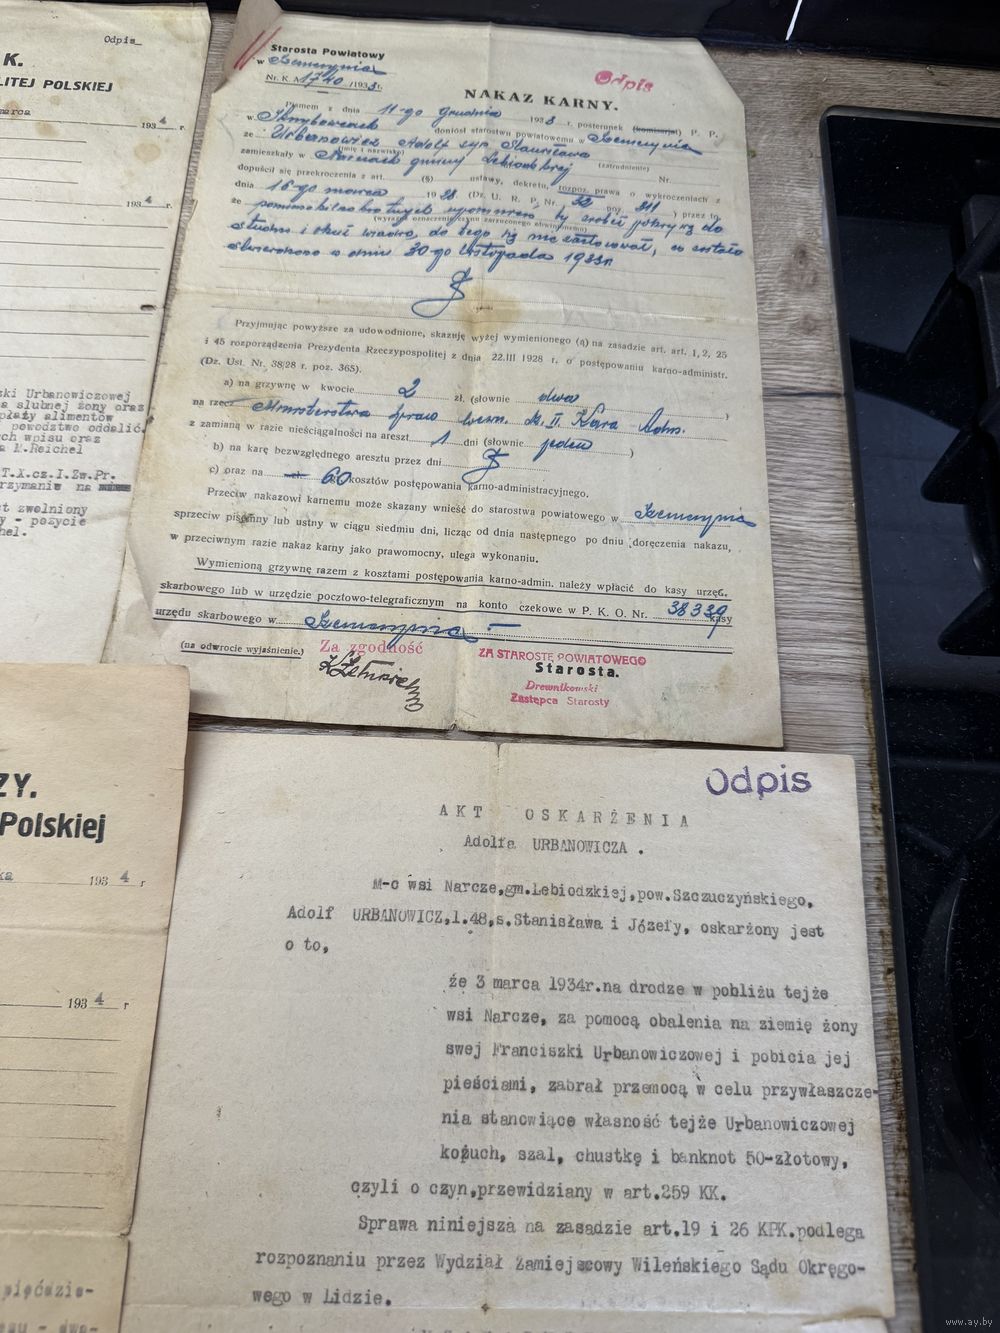 Odpis
K.
LITEJ POLSKIEJ
marca
193 4 r.
193 4 r.
zki Urbanowiczowej
a ślubnej żony oraz
płaty alimentów
powództwo oddalić.
ch wpisu oraz
a M.Reichel
T.X.cz.I.Zw.Pr.
rzymaniu na
t zwolniony
y - pozycie
hel.
Starosta Powiatowy
w Szczuczynie
Nr. K. A 1740 /1933 r.
Odpis
NAKAZ KARNY.
Pismem z dnia 11-go grudnia 1933 r. posterunek (komisarjat) P. P.
w doniósł starostwu powiatowemu w Szczuczynie
że Urbanowicz Adolf syn Stanisława
(imię i nazwisko) (zatrudnienie)
zamieszkały w Narczach gminy Lebiodzkiej Nr.
dopuścił się przekroczenia z art. (§) ustawy, dekretu, rozpoz. prawa o wykroczeniach z
dnia 16-go marca 1928 (Dz. U. R. P. Nr. 32 poz. 311 ) przez to
że pomimo kilkakrotnych upomnień by zrobić pokrywę do
(wyraźne oznaczenie czynu zarzuconego obwinionemu)
studni i okuć wiadro, do tego się nie zastosował, co zostało
stwierdzone w dniu 30-go listopada 1933r.
Przyjmując powyższe za udowodnione, skazuję wyżej wymienionego (ą) na zasadzie art. art. 1, 2, 25
i 45 rozporządzenia Prezydenta Rzeczypospolitej z dnia 22.III 1928 r. o postępowaniu karno-administr.
(Dz. Ust. Nr. 38/28 r. poz. 365).
a) na grzywnę w kwocie 2 zł. (słownie dwa
na rzecz Ministerstwa Spraw Wewn. Dz. II. Kara Adm. )
z zamianą w razie nieściągalności na areszt 1 dni (słownie jeden )
b) na karę bezwzględnego aresztu przez dni
c) oraz na 60 kosztów postępowania karno-administracyjnego.
Przeciw nakazowi karnemu może skazany wnieść do starostwa powiatowego w Szczuczynie
sprzeciw pisemny lub ustny w ciągu siedmiu dni, licząc od dnia następnego po dniu doręczenia nakazu,
w przeciwnym razie nakaz karny jako prawomocny, ulega wykonaniu.
Wymienioną grzywnę razem z kosztami postępowania karno-admin. należy wpłacić do kasy urzęd.
skarbowego lub w urzędzie pocztowo-telegraficznym na konto czekowe w P. K. O. Nr. 38339 kasy
urzędu skarbowego w Szczuczynie
(na odwrocie wyjaśnienie.)
Za zgodność
ZA STAROSTĘ POWIATOWEGO
Starosta.
Drewnikowski
Zastępca Starosty
ZY.
Polskiej
ka 193 4 r
193 4 r
pięćdzie-
Odpis
AKT OSKARŻENIA
Adolfa URBANOWICZA .
M-c wsi Narcze,gm.Lebiodzkiej,pow.Szczuczyńskiego,
Adolf URBANOWICZ,l.48,s.Stanisława i Józefy, oskarżony jest
o to,
że 3 marca 1934r.na drodze w pobliżu tejże
wsi Narcze, za pomocą obalenia na ziemię żony
swej Franciszki Urbanowiczowej i pobicia jej
pieściami, zabrał przemocą w celu przywłaszcze-
nia stanowiące własność tejże Urbanowiczowej
kożuch, szal, chustkę i banknot 50-złotowy,
czyli o czyn,przewidziany w art.259 KK.
Sprawa niniejsza na zasadzie art.19 i 26 KPK.podlega
rozpoznaniu przez Wydział Zamiejscowy Wileńskiego Sądu Okręgo-
wego w Lidzie.
www.ay.by